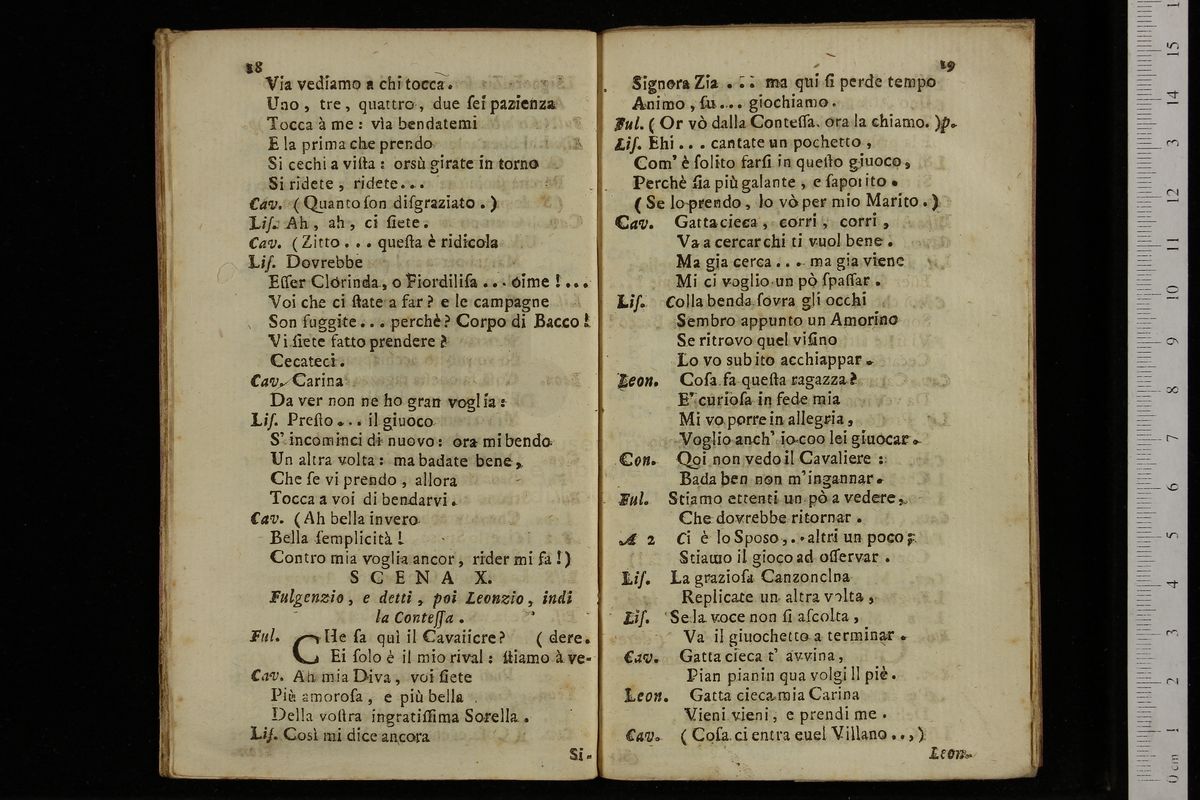 18
Via vediamo a chi tocca.
Uno, tre, quattro, due ſei pazienza
Tocca à me: vìa bendatemi
E la prima che prendo
Si cechi a viſta: orsù girate in torno
Si ridete, ridete...
Cav. (Quanto ſon diſgraziato.)
Liſ. Ah, ah, ci ſiete.
Cav. (Zitto... queſta è ridicola
Liſ. Dovrebbe
Eſſer Clorinda, o Fiordiliſa... oime!...
Voi che ci ſtate a far? e le campagne
Son fuggite... perchè? Corpo di Bacco!
Vi ſiete fatto prendere?
Cecateci.
Cav. Carina
Da ver non ne ho gran voglia:
Liſ. Preſto... il giuoco
S' incominci di nuovo: ora mi bendo
Un altra volta: ma badate bene,
Che ſe vi prendo, allora
Tocca a voi di bendarvi.
Cav. (Ah bella invero
Bella ſemplicità!
Contro mia voglia ancor, rider mi fa!)
SCENA X.
Fulgenzio, e detti, poi Leonzio, indi
la Conteſſa.
Ful. CHe fa quì il Cavaiicre? (dere.
Ei ſolo è il mio rival: ſtiamo à ve-
Cav. Ah mia Diva, voi ſiete
Più amoroſa, e più bella
Della voſtra ingratiſſima Sorella.
Liſ. Così mi dice ancora
Si-
19
Signora Zia... ma qui ſi perde tempo
Animo, ſu... giochiamo.
Ful. (Or vò dalla Conteſſa. ora la chiamo.)p.
Liſ. Ehi... cantate un pochetto,
Com' è ſolito farſi in queſto giuoco,
Perchè ſia più galante, e ſaporito.
(Se lo prendo, lo vò per mio Marito.)
Cav. Gatta cieca, corri, corri,
Va a cercar chi ti vuol bene.
Ma gia cerca... ma gia viene
Mi ci voglio un pò ſpaſſar.
Liſ. Colla benda ſovra gli occhi
Sembro appunto un Amorino
Se ritrovo quel viſino
Lo vo subito acchiappar.
Leon. Coſa fa queſta ragazza?
E' curioſa in fede mia
Mi vo porre in allegria,
Voglio anch' io coo lei giuocar.
Con. Qoi non vedo il Cavaliere:
Bada ben non m'ingannar.
Ful. Stiamo ettenti un pò a vedere,
Che dovrebbe ritornar.
A 2 Ci è lo Sposo,..altri un poco;
Stiamo il gioco ad oſſervar.
Liſ. La grazioſa Canzoncina
Replicate un altra volta,
Liſ. Se la voce non ſi aſcolta,
Va il giuochetto a terminar.
Cav. Gatta cieca t' avvina,
Pian pianin qua volgi il piè.
Leon. Gatta cieca mia Carina
Vieni vieni, e prendi me.
Cav. (Coſa ci entra euel Villano..,)
Leon.
0 cm 1 2 3 4 5 6 7 8 9 10 11 12 13 14 15